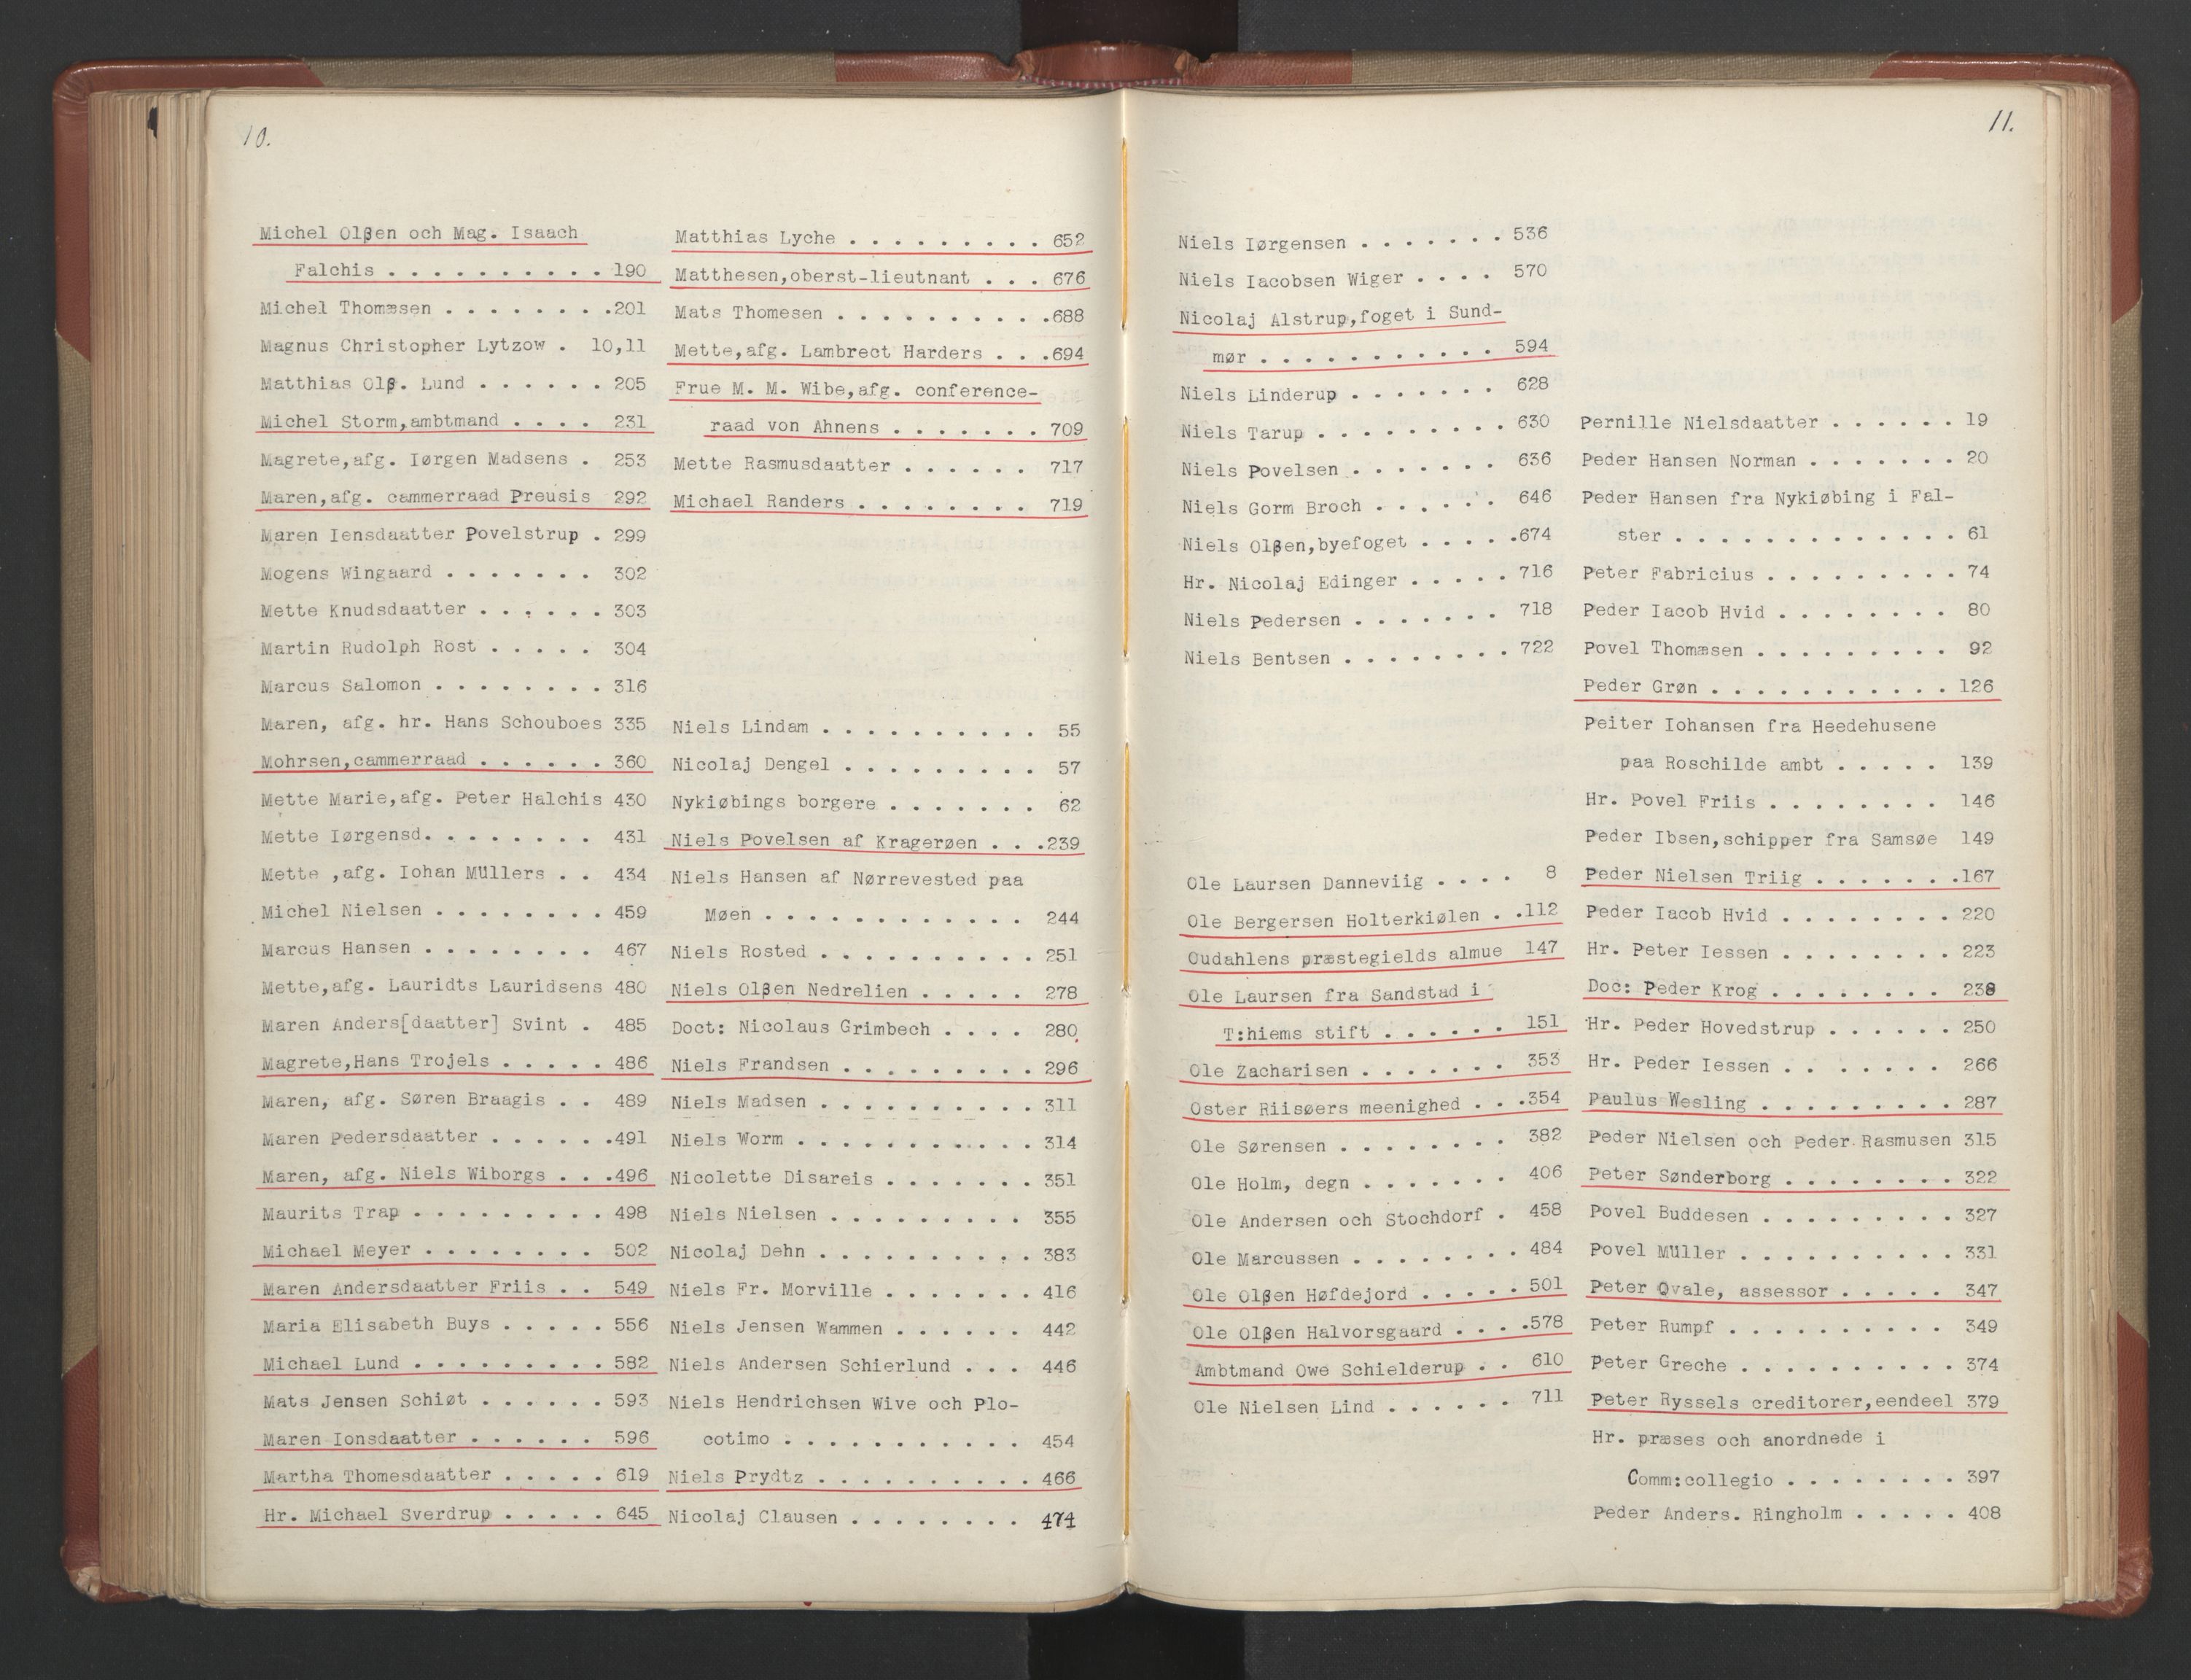 10.
Michel Olßen och Mag. Isaach
Falchis . . . . . . . . . . 190
Michel Thomæsen . . . . . . . .201
Magnus Christopher Lytzow . 10,11
Matthias Olß. Lund . . . . . . 205
Michel Storm,ambtmand . . . . 231
Magrete,afg. Iørgen Madsens . 253
Maren,afg. cammerraad Preusis 292
Maren Iensdaatter Povelstrup . 299
Mogens Wingaard . . . . . . . 302
Mette Knudsdaatter . . . . . . 303
Martin Rudolph Rost . . . . . 304
Marcus Salomon . . . . . . . . 316
Maren, afg. hr. Hans Schouboes 335
Mohrsen,cammerraad . . . . . . 360
Mette Marie,afg. Peter Halchis 430
Mette Iørgensd. . . . . . . . 431
Mette ,afg. Iohan Müllers . . 434
Michel Nielsen . . . . . . . . 459
Marcus Hansen . . . . . . . . 467
Mette,afg. Lauridts Lauridsens 480
Maren Anders[daatter] Svint . 485
Magrete,Hans Trojels . . . . . 486
Maren, afg. Søren Braagis . . 489
Maren Pedersdaatter . . . . . .491
Maren, afg. Niels Wiborgs . . .496
Maurits Trap . . . . . . . . . 498
Michael Meyer . . . . . . . . 502
Maren Andersdaatter Friis . . 549
Maria Elisabeth Buys . . . . . 556
Michael Lund . . . . . . . . . 582
Mats Jensen Schiøt . . . . . . 593
Maren Ionsdaatter . . . . . . 596
Martha Thomesdaatter . . . . . 619
Hr. Michael Sverdrup . . . . . 645
Matthias Lyche . . . . . . . . . 652
Matthesen,oberst-lieutnant . . . 676
Mats Thomesen . . . . . . . . . .688
Mette,afg. Lambrect Harders . . .694
Frue M. M. Wibe,afg. conference-
raad von Ahnens . . . . . . . 709
Mette Rasmusdaatter . . . . . . 717
Michael Randers . . . . . . . . 719
Niels Lindam . . . . . . . . . . 55
Nicolaj Dengel . . . . . . . . . 57
Nykiøbings borgere . . . . . . . 62
Niels Povelsen af Kragerøen . . .239
Niels Hansen af Nørrevested paa
Møen . . . . . . . . . . . . 244
Niels Rosted . . . . . . . . . . 251
Niels Olßen Nedrelien . . . . . 278
Doct: Nicolaus Grimbech . . . . 280
Niels Frandsen . . . . . . . . . 296
Niels Madsen . . . . . . . . . . 311
Niels Worm . . . . . . . . . . . 314
Nicolette Disareis . . . . . . . 351
Niels Nielsen . . . . . . . . . 355
Nicolaj Dehn . . . . . . . . . . 383
Niels Fr. Morville . . . . . . . 416
Niels Jensen Wammen . . . . . . 442
Niels Andersen Schierlund . . . 446
Niels Hendrichsen Wive och Plo-
cotimo . . . . . . . . . . . 454
Niels Prydtz . . . . . . . . . . 466
Nicolaj Clausen . . . . . . . . 474
11.
Niels Iørgensen . . . . . . . 536
Niels Iacobsen Wiger . . . . 570
Nicolaj Alstrup,foget i Sund-
mør . . . . . . . . . . . 594
Niels Linderup . . . . . . . 628
Niels Tarup . . . . . . . . . 630
Niels Povelsen . . . . . . . 636
Niels Gorm Broch . . . . . . 646
Niels Olßen,byefoget . . . . .674
Hr. Nicolaj Edinger . . . . . 716
Niels Pedersen . . . . . . . 718
Niels Bentsen . . . . . . . . 722
Ole Laursen Danneviig . . . . 8
Ole Bergersen Holterkiølen . .112
Oudahlens præstegields almue 147
Ole Laursen fra Sandstad i
T:hiems stift . . . . . . 151
Ole Zacharisen . . . . . . . 353
Oster Riisøers meenighed . . .354
Ole Sørensen . . . . . . . . 382
Ole Holm, degn . . . . . . . 406
Ole Andersen och Stochdorf . 458
Ole Marcussen . . . . . . . . 484
Ole Olßen Høfdejord . . . . . 501
Ole Olßen Halvorsgaard . . . .578
Ambtmand Owe Schielderup . . 610
Ole Nielsen Lind . . . . . . 711
Pernille Nielsdaatter . . . . . . 19
Peder Hansen Norman . . . . . . . 20
Peder Hansen fra Nykiøbing i Fal-
ster . . . . . . . . . . . . . 61
Peter Fabricius . . . . . . . . . 74
Peder Iacob Hvid . . . . . . . . 80
Povel Thomæsen . . . . . . . . . 92
Peder Grøn . . . . . . . . . . . 126
Peiter Iohansen fra Heedehusene
paa Roschilde ambt . . . . . 139
Hr. Povel Friis . . . . . . . . 146
Peder Ibsen,schipper fra Samsøe 149
Peder Nielsen Triig . . . . . . .167
Peder Iacob Hvid . . . . . . . . 220
Hr. Peter Iessen . . . . . . . . 223
Doc: Peder Krog . . . . . . . . 238
Hr. Peder Hovedstrup . . . . . . 250
Hr. Peder Iessen . . . . . . . 266
Paulus Wesling . . . . . . . . . 287
Peder Nielsen och Peder Rasmusen 315
Peter Sønderborg . . . . . . . . 322
Povel Buddesen . . . . . . . . . 327
Povel Müller . . . . . . . . . . 331
Peter Ovale, assessor . . . . . 347
Peter Rumpf . . . . . . . . . . 349
Peter Greche . . . . . . . . . . 374
Peter Ryssels creditorer,eendeel 379
Hr. præses och anordnede i
Comm:collegio . . . . . . . . 397
Peder Anders. Ringholm . . . . . 408